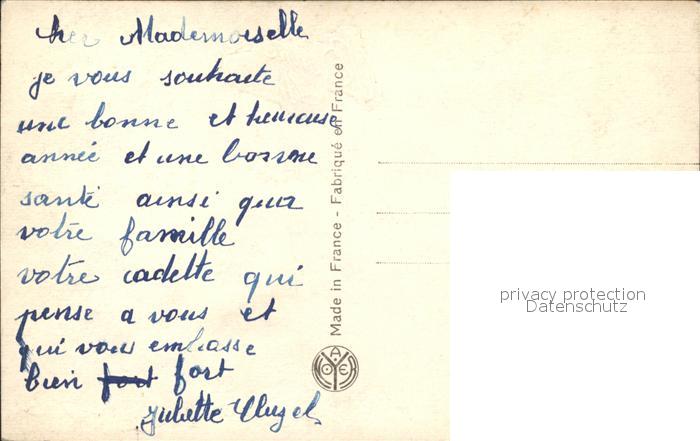 cher Mademoiselle
je vous souhaite
une bonne et heureuse
année et une bonne
santé ainsi que
votre famille
votre cadette qui
pense a vous et
qui vous embrasse
bien fort fort
Juliette
Made in France - Fabriqué en France
privacy protection
Datenschutz